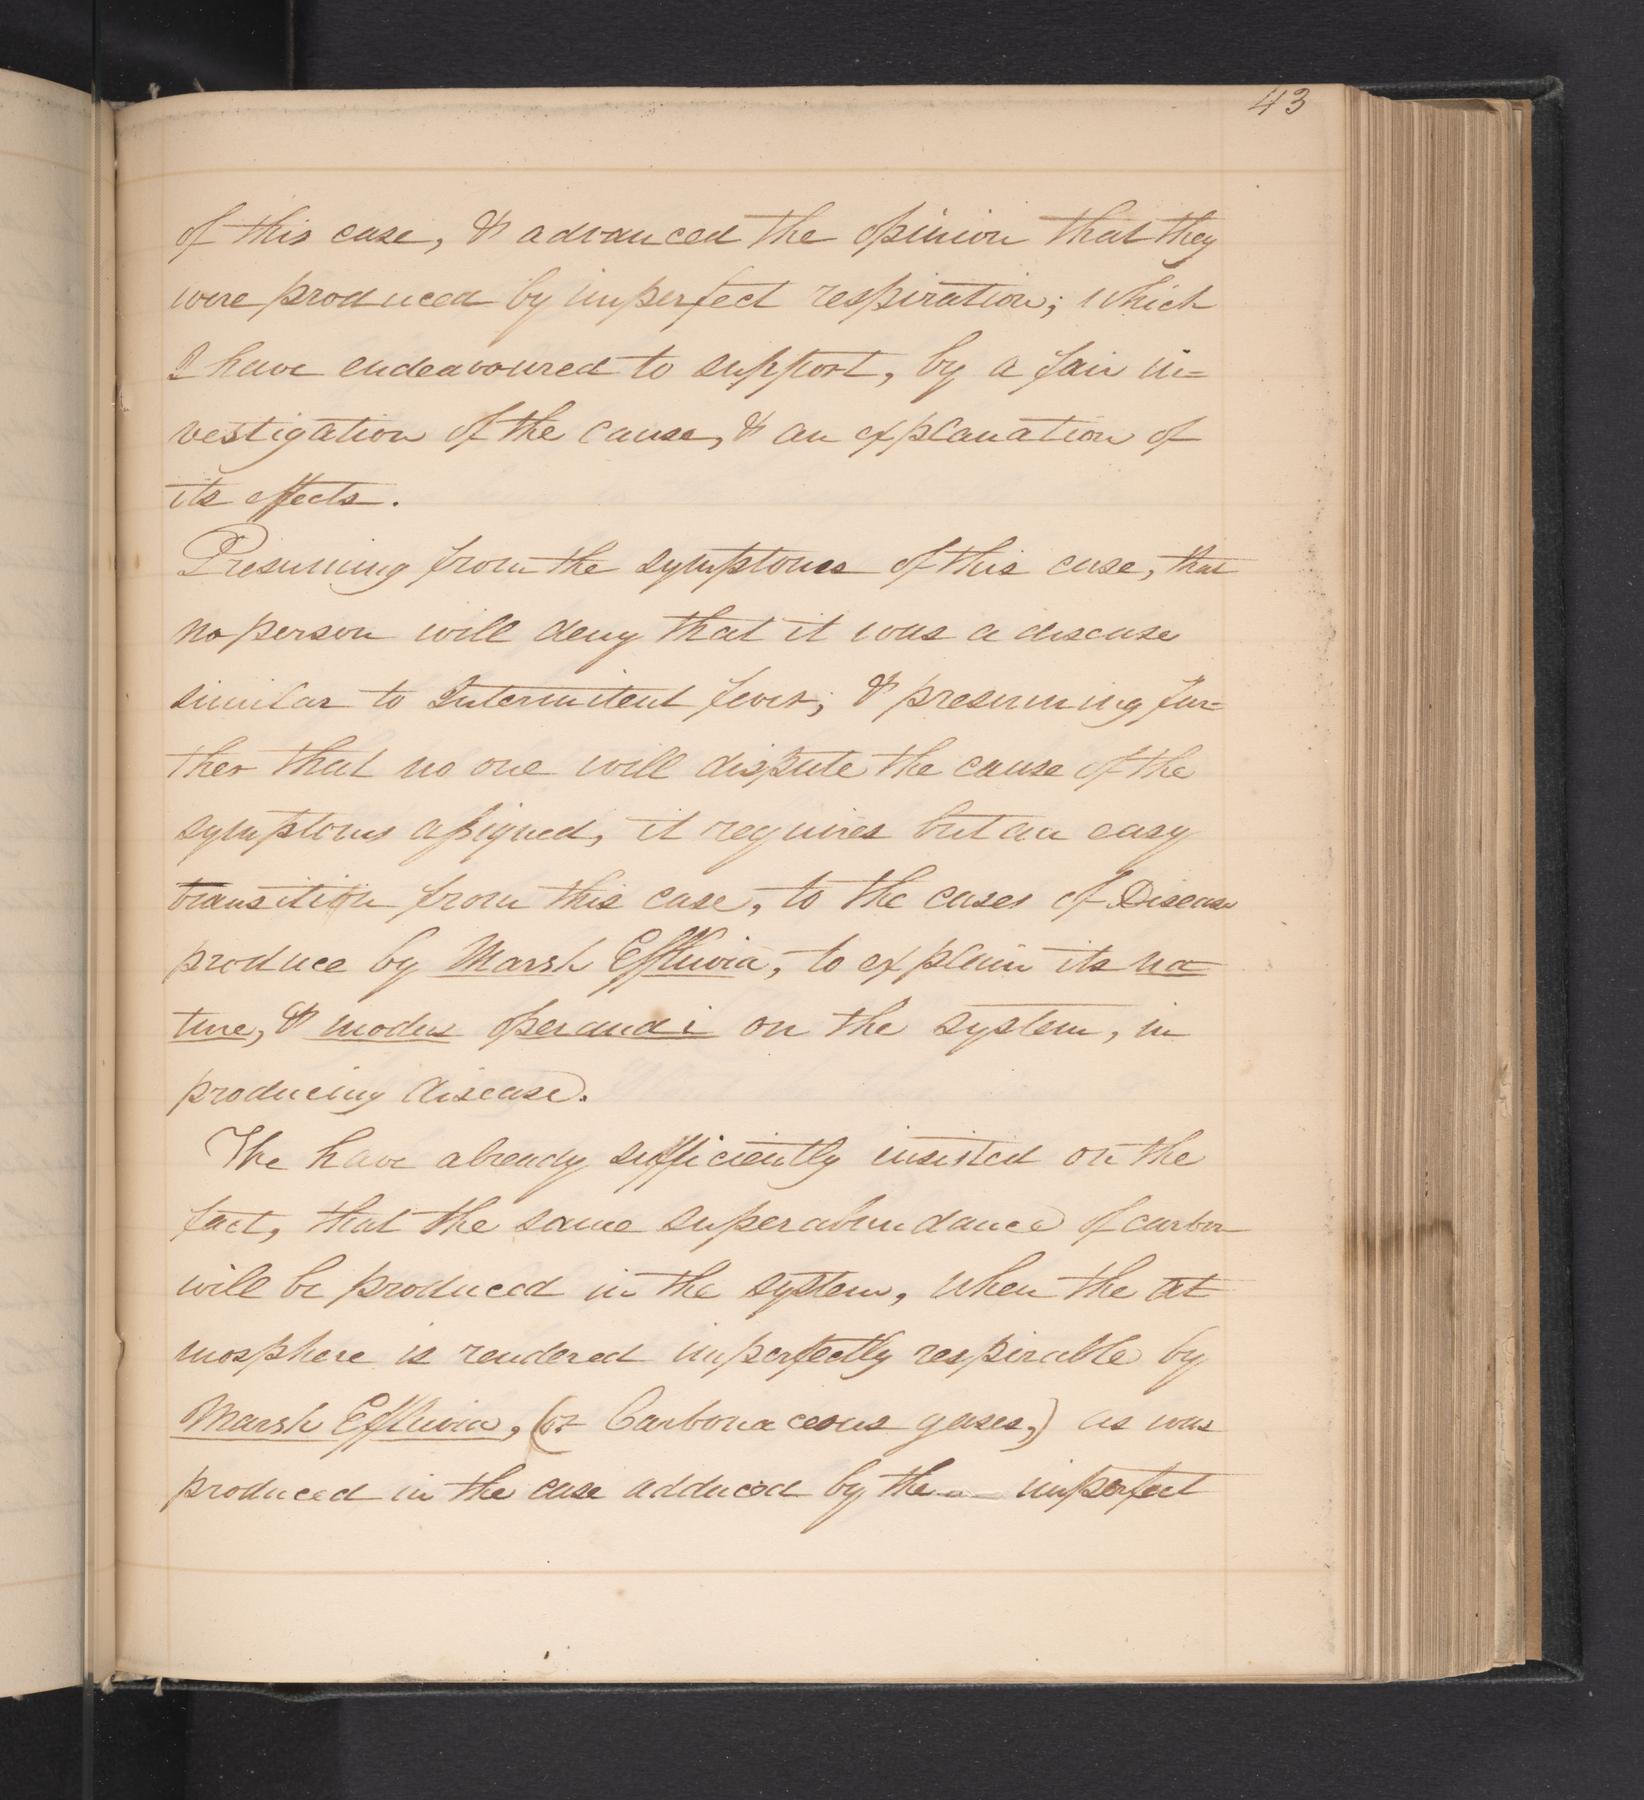 43
of this case, & advanced the opinion that they
were produced by imperfect respiration; which
I have endeavoured to support, by a fair in=
vestigation of the cause, & an explanation of
its effects.
Presuming from the symptoms of this case, that
no person will deny that it was a disease
similar to Intermitent fever; & presuming fur=
ther that no one will dispute the cause of the
symptoms assigned, it requires but an easy
transition from this case, to the cases of Disease
produce by Marsh Effluvia, to explain its na
ture, & modus operandi on the system, in
producing disease.
The have already sufficiently insisted on the
fact, that the same superabundance of carbon
will be produced in the system, when the at
mosphere is rendered imperfectly respirable by
Marsh Effluvia, (or Carbonaceous gases,) as was
produced in the case adduced by the imperfect